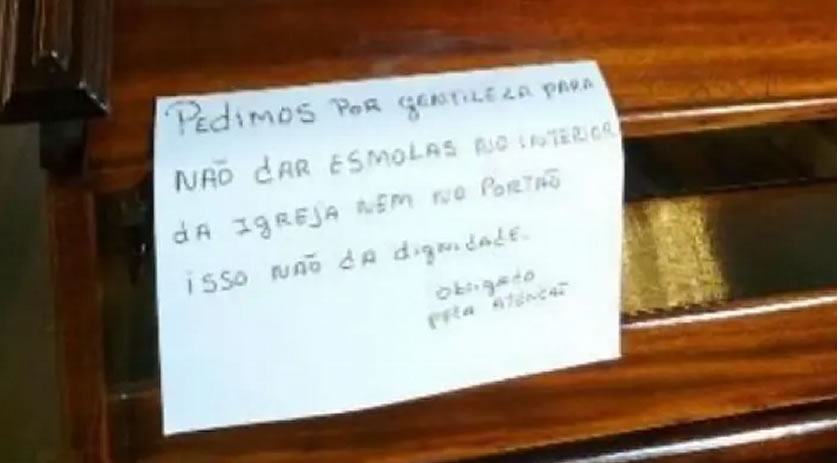 PEdiMOS POR gENTiLEZA PARA
NÃO dAR ESMOLAS NO iNTERiOR
dA IgREJA NEM NO PORTÃO
iSSO NÃO dA digNidAdE.
Obrigado
PELA ATENÇÃO